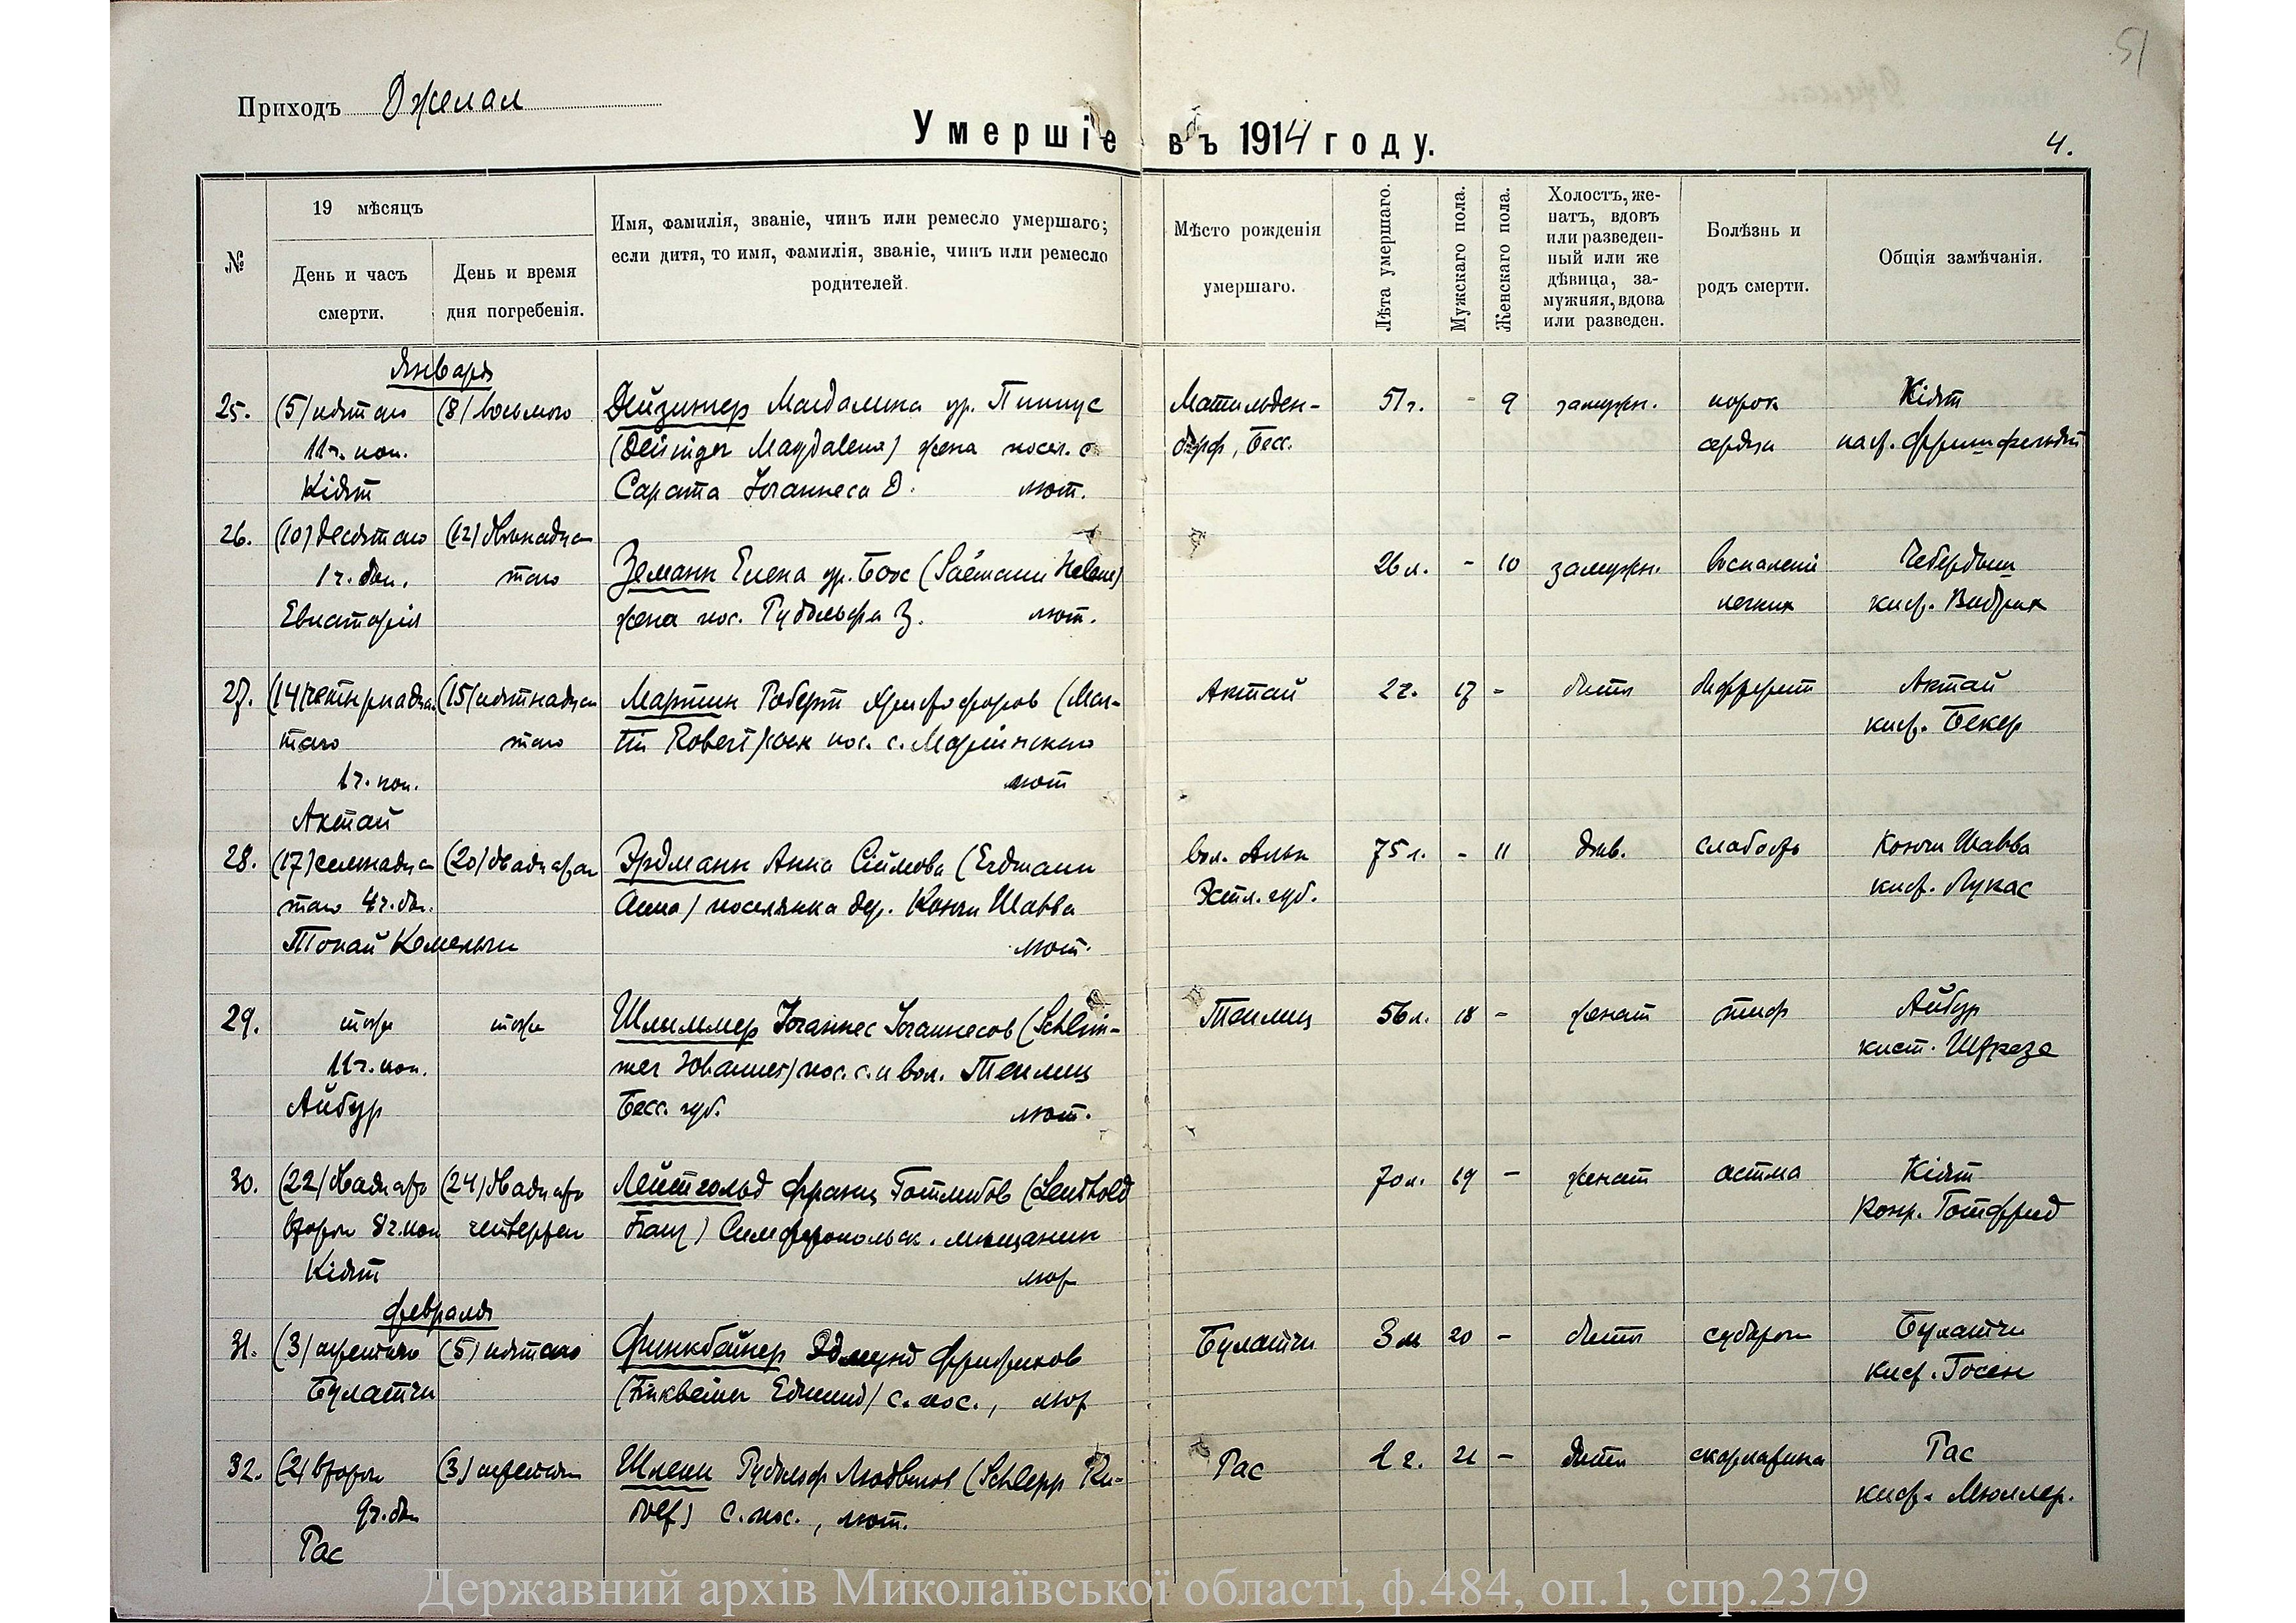 51
Приходъ Джелал
Умершіе въ 1914 году.
4.
№
19 мѣсяцъ
День и часъ смерти.
День и время дня погребенія.
Имя, фамилія, званіе, чинъ или ремесло умершаго;
если дитя, то имя, фамилія, званіе, чинъ или ремесло
родителей.
Мѣсто рожденія
умершаго.
Лѣта умершаго.
Мужскаго пола.
Женскаго пола.
Холостъ, же-
натъ, вдовъ
или разведен-
ный или же
дѣвица, за-
мужняя, вдова
или разведен.
Болѣзнь и
родъ смерти.
Общія замѣчанія.
Января
25. (5) пятаго (8) восьмого Дейзингер Магдалина ур. Пиппус Матильден- 51 г. - 9 замужн. порок Кіят
11 ч. поп. (Deininger Magdalena) жена посел. с. дорф, Бесс. сердца
Кіят Сарата Іоганнеса Д. лют.
26. (10) десятаго (12) двѣнадца 26 л. - 10 замужн. воспаленіе
1 ч. дн. таго Земанн Елена ур. Бокс (Säemann Helene) легких
Евпаторія жена пос. Рудольфа З. лют.
27. (14) четырнадца (15) пятнадца Мартин Роберт Христофоров (Mar- Актай 2 г. 17 - дитя дифферит Актай
таго таго tin Robert) сын пос. с. Маріинскаго кист. Бекер
1 ч. поп. лют
Актай
28. (17) семнадца (20) двадцатаг Эрдманн Анна Сіимова (Erdmann вол. 75 л. - 11 дѣв. слабость Кончи Шавва
таго 4 ч. дн. Anna) поселянка дер. Кончи Шавва Эстл. губ. кист. Лукас
Топай лют.
29. тож тож Шлиммер Іоганнес Іоганнесов (Schlim- Теплиц 56 л. 18 - женат тиф Айбур
11 ч. поп. mer Johannes) пос. с. и вол. Теплиц кист.
Айбур Бесс. губ. лют.
30. (22) двадцать (24) двадцать Лейтгольд Франц Готлибов (Leuthold 70 л. 19 - женат астма Кіят
второго 8 ч. поп четвертаго Franz) Симферопольск. мещанин Готфрид
Кіят лют
февраля
31. (3) третяго (5) пятаго Финкбейнер Эдмунд Фридрихов Булатчи 3 м 20 - дитя судороги Булатчи
Булатчи (Finkbeiner Edmund) с. пос., лют кист. Госен
32. (2) второго (3) третяго Шлепп Рудольф Людвигов (Schlepp Ru- Рас 2 г. 21 - дитя скарлатина Рас
9 ч. дн dolf) с. пос., лют. кист. Мюллер.
Рас
Державний архів Миколаївської області, ф.484, оп.1, спр.2379